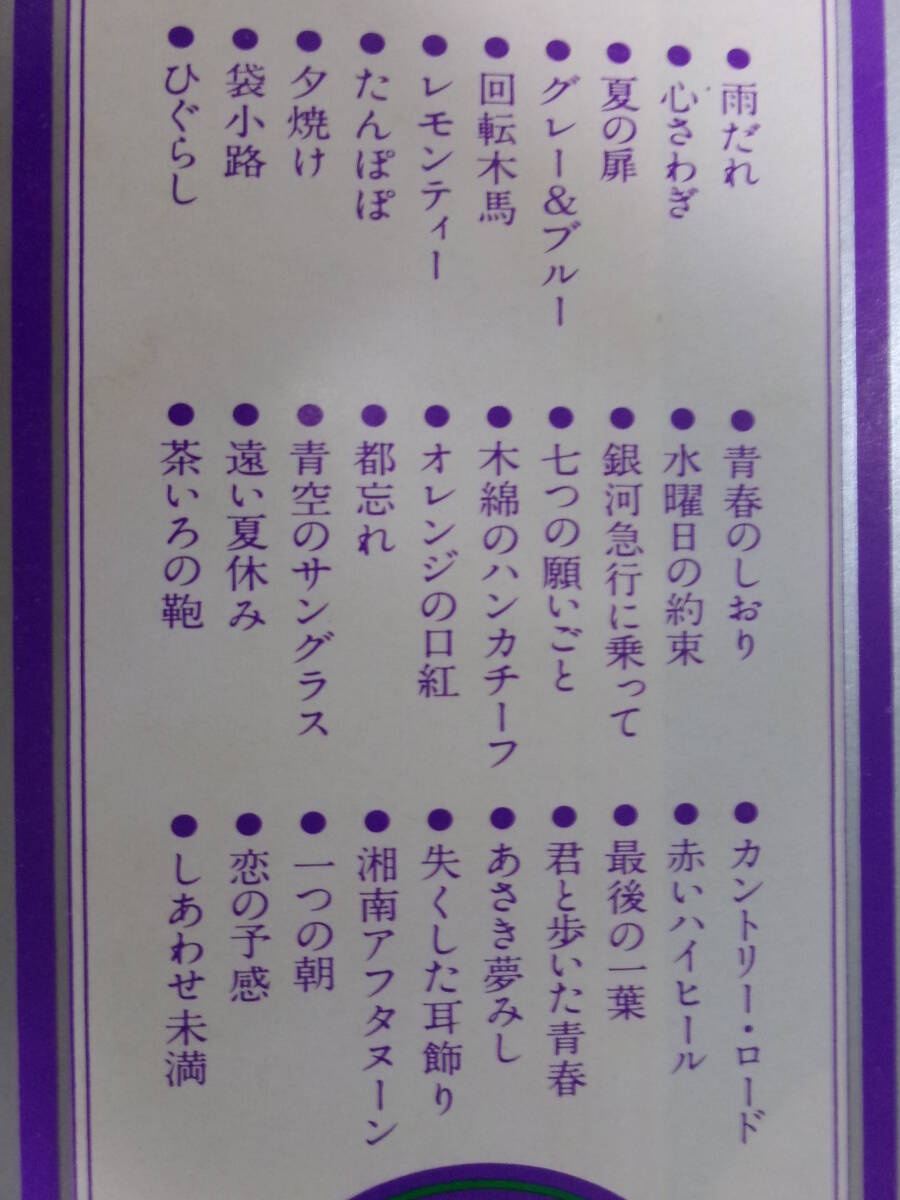 ●雨だれ
●心さわぎ
●夏の扉
●グレー&ブルー
●回転木馬
●レモンティー
●たんぽぽ
●夕焼け
●袋小路
●ひぐらし
●青春のしおり
●水曜日の約束
●銀河急行に乗って
●七つの願いごと
●木綿のハンカチーフ
●オレンジの口紅
●都忘れ
●青空のサングラス
●遠い夏休み
●茶いろの鞄
●カントリー・ロード
●赤いハイヒール
●最後の一葉
●君と歩いた青春
●あさき夢みし
●失くした耳飾り
●湘南アフタヌーン
●一つの朝
●恋の予感
●しあわせ未満